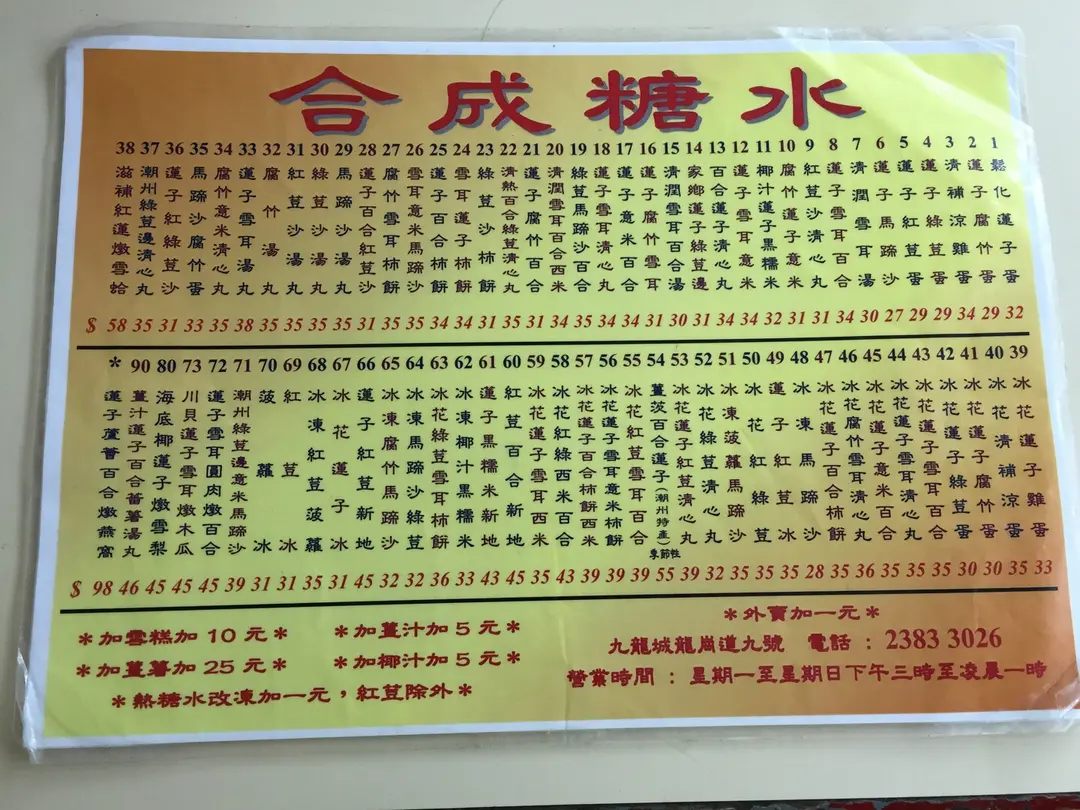 合成糖水
1 鬆化蓮子蛋 32
2 蓮子腐竹蛋 29
3 清補涼雞蛋 34
4 蓮子綠荳蛋 29
5 蓮子紅荳蛋 29
6 蓮子馬蹄沙 27
7 清潤雪耳湯 30
8 蓮子雪耳百合 34
9 紅荳沙清心丸 31
10 腐竹蓮子意米 31
11 椰汁蓮子黑糯米 32
12 蓮子雪耳意米 34
13 百合蓮子清心丸 34
14 家鄉蓮子綠荳邊 31
15 清潤雪耳百合湯 30
16 蓮子腐竹雪耳 31
17 蓮子意米百合 34
18 蓮子雪耳清心丸 34
19 綠荳馬蹄沙百合 35
20 清潤雪耳百合西米 34
21 蓮子腐竹百合 31
22 清熱百合綠荳清心丸 35
23 綠荳沙柿餅 31
24 雪耳蓮子柿餅 34
25 蓮子百合柿餅 34
26 雪耳意米馬蹄沙 35
27 腐竹雪耳柿餅 35
28 蓮子百合紅荳沙 31
29 馬蹄沙湯丸 35
30 綠荳沙湯丸 35
31 紅荳沙湯丸 35
32 腐竹湯丸 35
33 蓮子雪耳湯丸 38
34 腐竹意米清心丸 35
35 馬蹄沙腐竹蛋 33
36 蓮子紅綠荳沙 31
37 潮州綠荳邊清心丸 35
38 滋補紅蓮燉雪蛤 $ 58
39 冰花蓮子雞蛋 33
40 冰花清補涼 35
41 冰花蓮子腐竹蛋 30
42 冰花蓮子綠荳蛋 30
43 冰花蓮子雪耳百合 35
44 冰花蓮子雪耳清心丸 35
45 冰花蓮子意米百合 35
46 冰花腐竹雪耳清心丸 36
47 冰花蓮子百合柿餅 35
48 冰凍馬蹄沙 28
49 蓮子紅荳冰 35
50 冰花綠荳冰 35
51 冰凍菠蘿馬蹄沙 35
52 冰花綠清心丸 32
53 冰花蓮子紅荳清心丸 39
54 薑茨百合蓮子(潮州特產)季節性 55
55 冰花紅荳雪耳百合 39
56 冰花蓮子雪耳意米柿餅 39
57 冰花蓮子百合柿餅西米 39
58 冰花紅綠西米百合 43
59 冰花蓮子雪耳西米 35
60 紅荳百合新地 45
61 蓮子黑糯米新地 43
62 冰凍椰汁黑糯米 33
63 冰花綠荳雪耳柿餅 36
64 冰凍馬蹄沙綠荳 32
65 冰凍腐竹馬蹄沙 32
66 蓮子紅荳新地 45
67 冰花蓮子冰 31
68 冰凍紅荳菠蘿 35
69 紅荳冰 31
70 菠蘿冰 31
71 潮州綠荳邊意米馬蹄沙 39
72 蓮子雪耳圓肉燉百合 45
73 川貝蓮子雪耳燉木瓜 45
80 海底椰蓮子燉雪梨 45
90 薑汁蓮子百合蕃薯湯丸 46
* 蓮子蘆薈百合燉燕窩 $ 98
*加雪糕加 10 元* *加薑汁加 5 元*
*加薑薯加 25 元* *加椰汁加 5 元*
*熱糖水改凍加一元,紅荳除外*
*外賣加一元*
九龍城龍崗道九號 電話 : 2383 3026
營業時間 : 星期一至星期日下午三時至凌晨一時